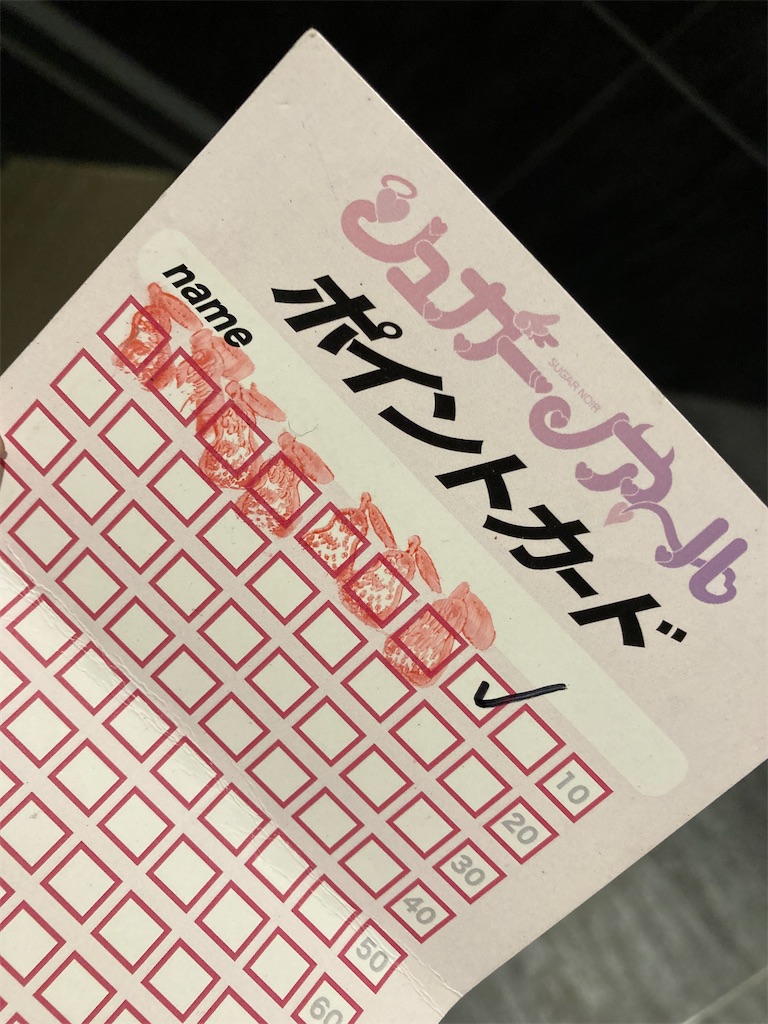 シュガーノワール
SUGAR NOIR
ポイントカード
name
10
20
30
40
50
60